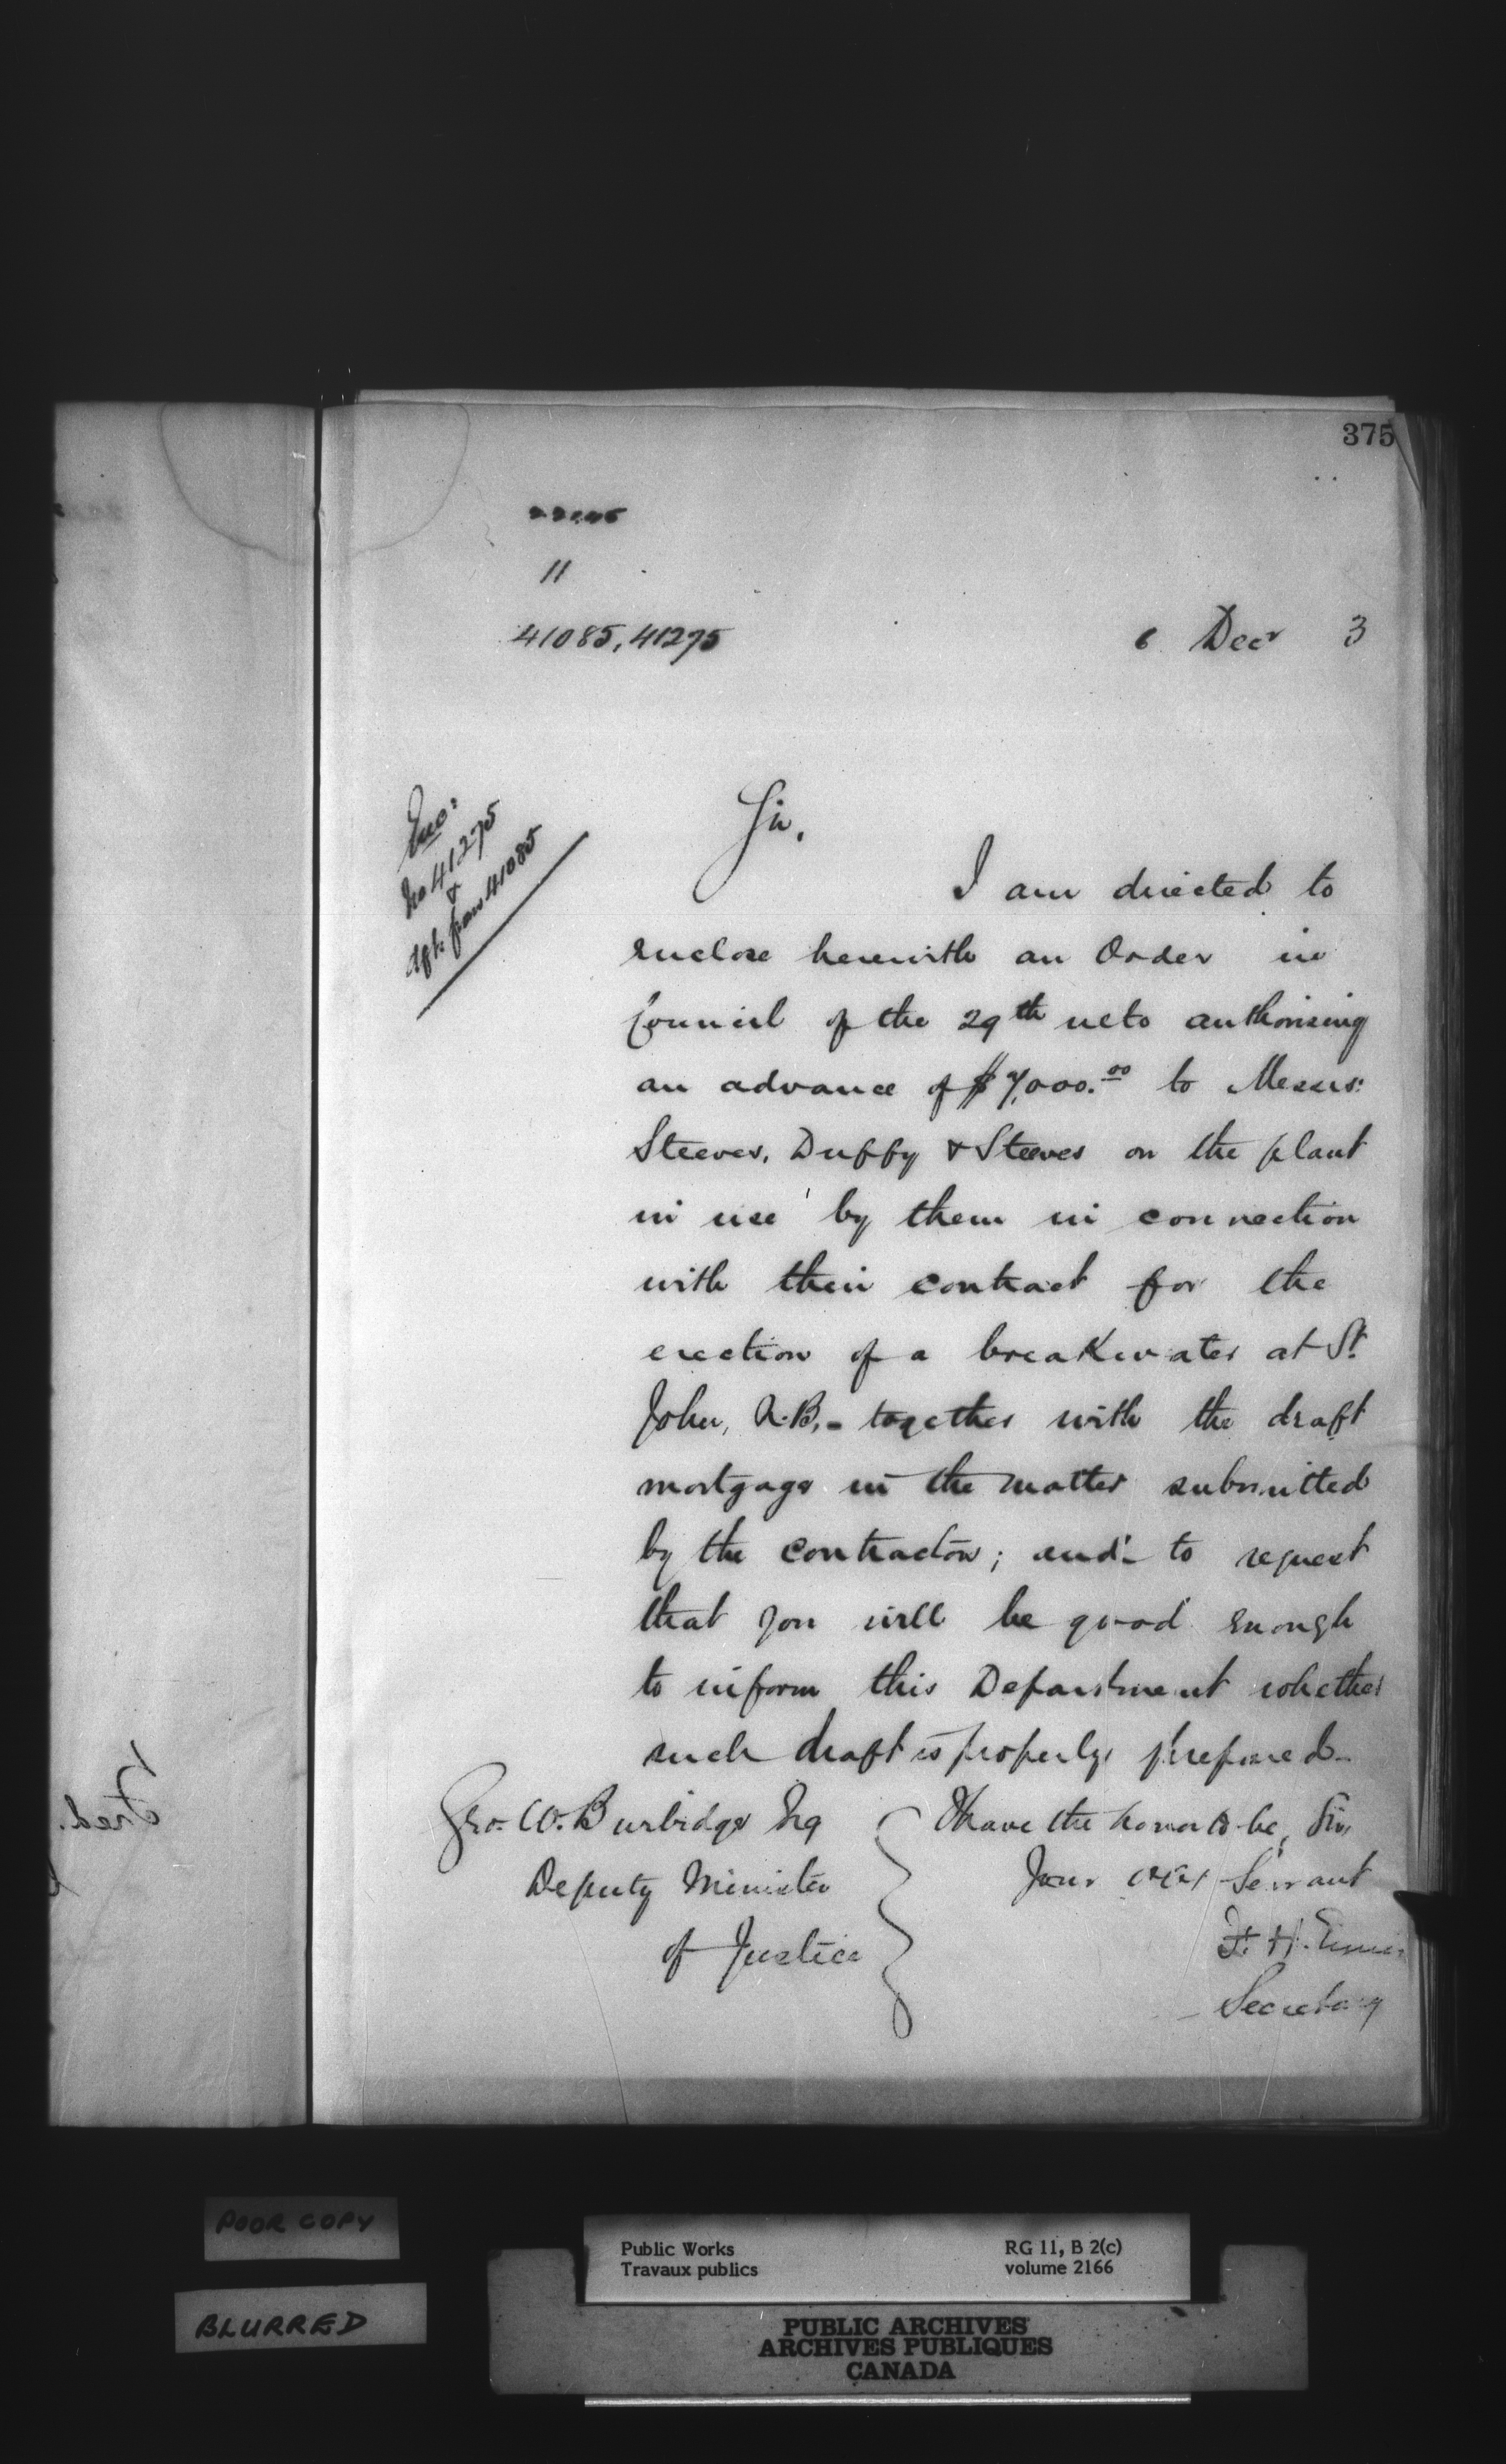 375
11
41085, 41275
6 Decr 3
Enc:
No 41275
&
dft. from 41085
Sir,
I am directed to
enclose herewith an Order in
Council of the 29th ulto authorising
an advance of $7,000.00 to Messrs:
Steeves, Duffy & Steeves on the plant
in use by them in connection
with their contract for the
erection of a breakwater at St.
John, N.B, - together with the draft
mortgage in the matter submitted
by the contractors; and - to request
that you will be good enough
to inform this Department whether
such draft is properly prepared -
I have the honor to be, Sir,
Your obt Servant
F. H. Ennis
Secretary
Geo. W. Burbidge Esq
Deputy Minister
of Justice
Fred.
POOR COPY
BLURRED
Public Works
Travaux publics
RG 11, B 2(c)
volume 2166
PUBLIC ARCHIVES
ARCHIVES PUBLIQUES
CANADA